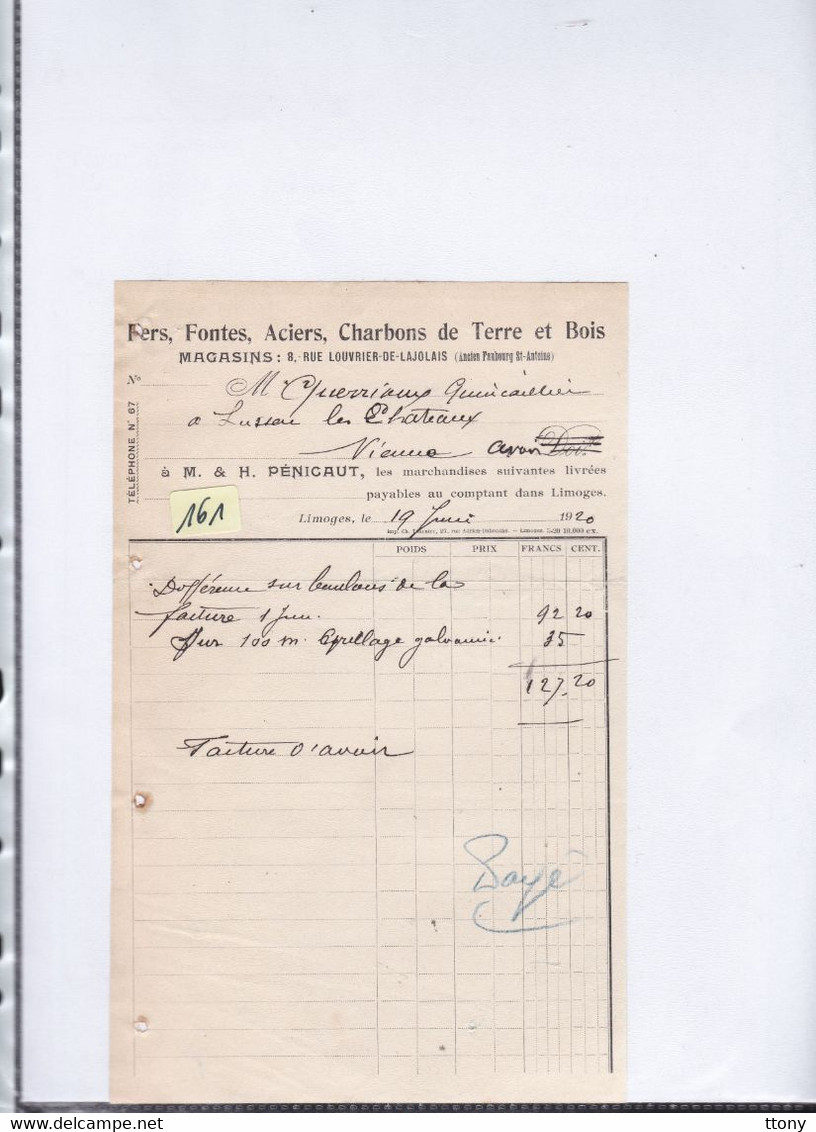 Fers, Fontes, Aciers, Charbons de Terre et Bois
MAGASINS: 8, RUE LOUVRIER-DE-LAJOLAIS (Ancien Faubourg St-Antoine)
N°
M Guerriaux Quincaillier
a Lussac les Châteaux
Vienne avoir Doit
à M. & H. PÉNICAUT, les marchandises suivantes livrées
payables au comptant dans Limoges.
TÉLÉPHONE N° 67
161
Limoges, le 19 Juin 1920
POIDS PRIX FRANCS CENT.
Différence sur boulons de la
facture 1 Juin 92 20
Sur 100 m. Grillage galvanisé 35
127.20
Facture d'avoir
Payé
delcampe.net
ttony